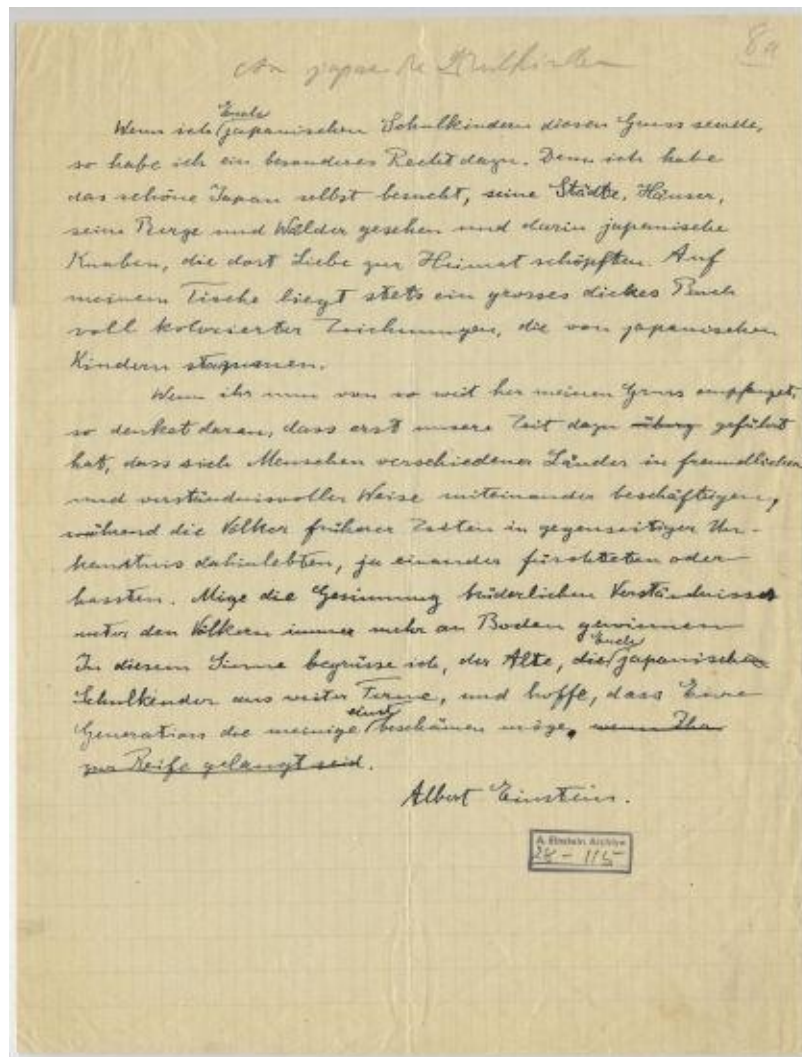 8a
An japan
Euch
Wenn ich japanischen Schulkindern diesen Gruss sende,
so habe ich ein besonderes Recht dazu. Denn ich habe
das schöne Japan selbst besucht, seine Städte, Häuser,
seine Berge und Wälder gesehen und darin japanische
Knaben, die dort Liebe zur Heimat schöpften. Auf
meinem Tische liegt stets ein grosses dickes Buch
voll kolorierter Zeichnungen, die von japanischen
Kindern stammen.
Wenn ihr nun von so weit her meinen Gruss empfanget,
so denket daran, dass erst unsere Zeit dazu geführt
hat, dass sich Menschen verschiedener Länder in freundlicher
und verständnisvoller Weise miteinander beschäftigen,
während die Völker früherer Zeiten in gegenseitiger Un-
kenntnis dahinlebten, ja einander fürchteten oder
hassten. Möge die Gesinnung brüderlichen Verständnisses
unter den Völkern immer mehr an Boden gewinnen
Euch
In diesem Sinne begrüsse ich, der Alte, die japanischen
Schulkinder aus weiter Ferne, und hoffe, dass Eure
einst
Generation die meinige beschämen möge, wenn Ihr
zur Reife gelangt seid.
Albert Einstein.
A. Einstein Archive
28-115